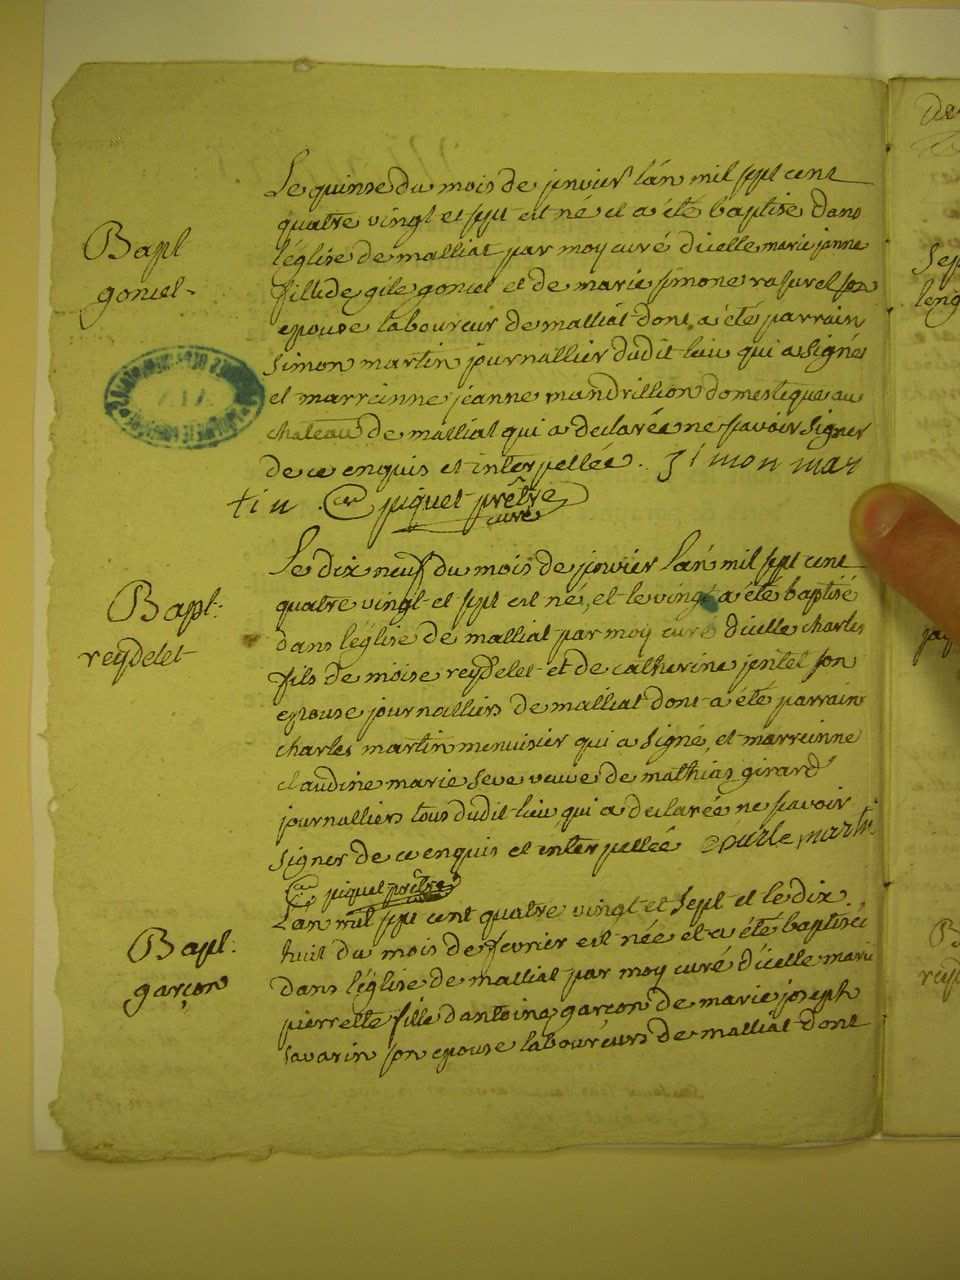 Le quinse du mois de jenvier lán mil sept cent
quatre vingt et sept est né et a été baptise dans
Bapt
goniel-
léglise de malliat par moy curé dicelle marie janne
fille de gile goniel et de marie simone rasurel son
epouse laboureur de malliat dont a été parrain
simon martin journallier dudit lieu qui a signés
et marreinne jeanne mandrillion domestique au
chateau de malliat qui a declarée ne savoir signer
de ce enquis et interpellée. Simon mar
tin piquet prêtre
curé
Le dix neuf du mois de jenvier lán mil sept cent
Bapt:
reydelet
quatre vingt et sept est né, et le vingt a été baptisé
dans léglise de malliat par moy curé dicelle charles
fils de moise reydelet et de catherine jentel son
epouse journalliers de malliat dont a été parrain
charles martin menuisier qui a signé, et marreinne
claudine marie seve veuve de mathias girard
journalliers tous dudit lieu qui a declarée ne savoir
signer de ce enquis et interpellée charle martin
piquet prêtre
Lan mil sept cent quatre vingt et sept et le dix
Bapt:
garçon
huit du mois de fevrier est née et a été baptisée
dans léglise de malliat par moy curé dicelle marie
pierrette fille dantoine garçon de marie joseph
savarin son epouse laboureurs de malliat dont